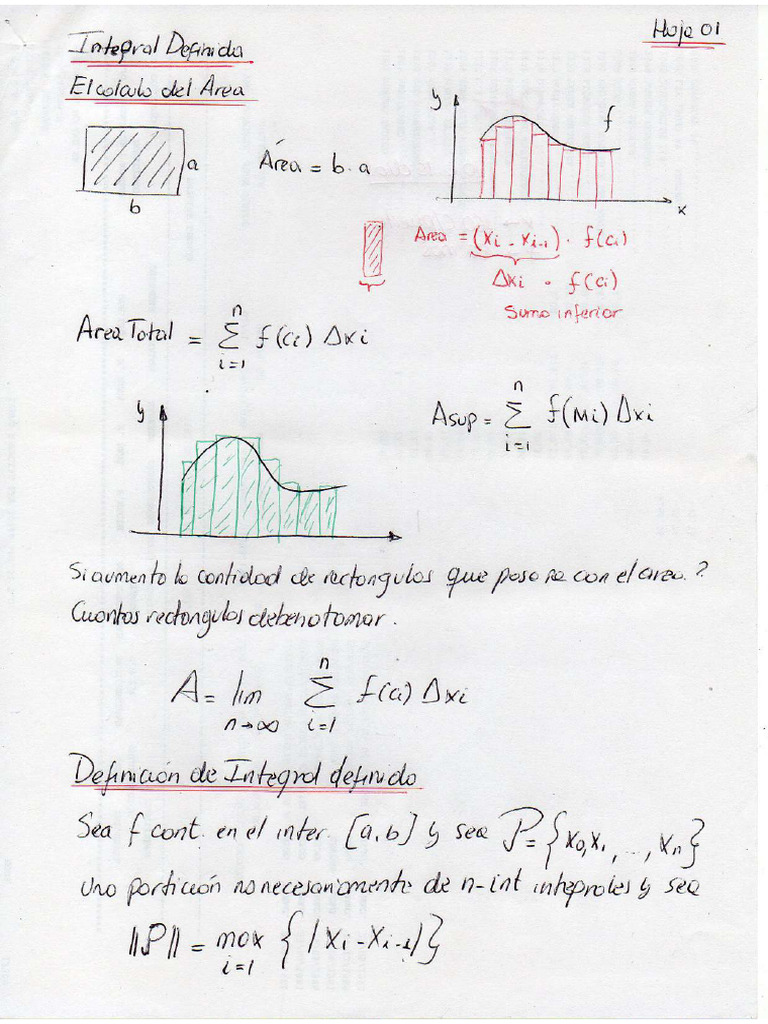 Hoja 01
Integral Definida
El calculo del Area
a
b
Área = b . a
y
f
x
Area = (xi - xi-1) . f(ci)
Δxi . f(ci)
Suma inferior
Area Total = n Σ i=1 f(ci) Δxi
y
Asup = n Σ i=1 f(Mi) Δxi
Si aumento la cantidad de rectangulos que pasa con el area ?
Cuantos rectangulos debe tomar.
A = lim n→∞ n Σ i=1 f(ci) Δxi
Definición de Integral definida
Sea f cont. en el inter. [a,b] y sea P = {x0, x1, ..., xn}
una partición no necesariamente de n-int integrales y sea
||P|| = max i=1 { |xi - xi-1| }